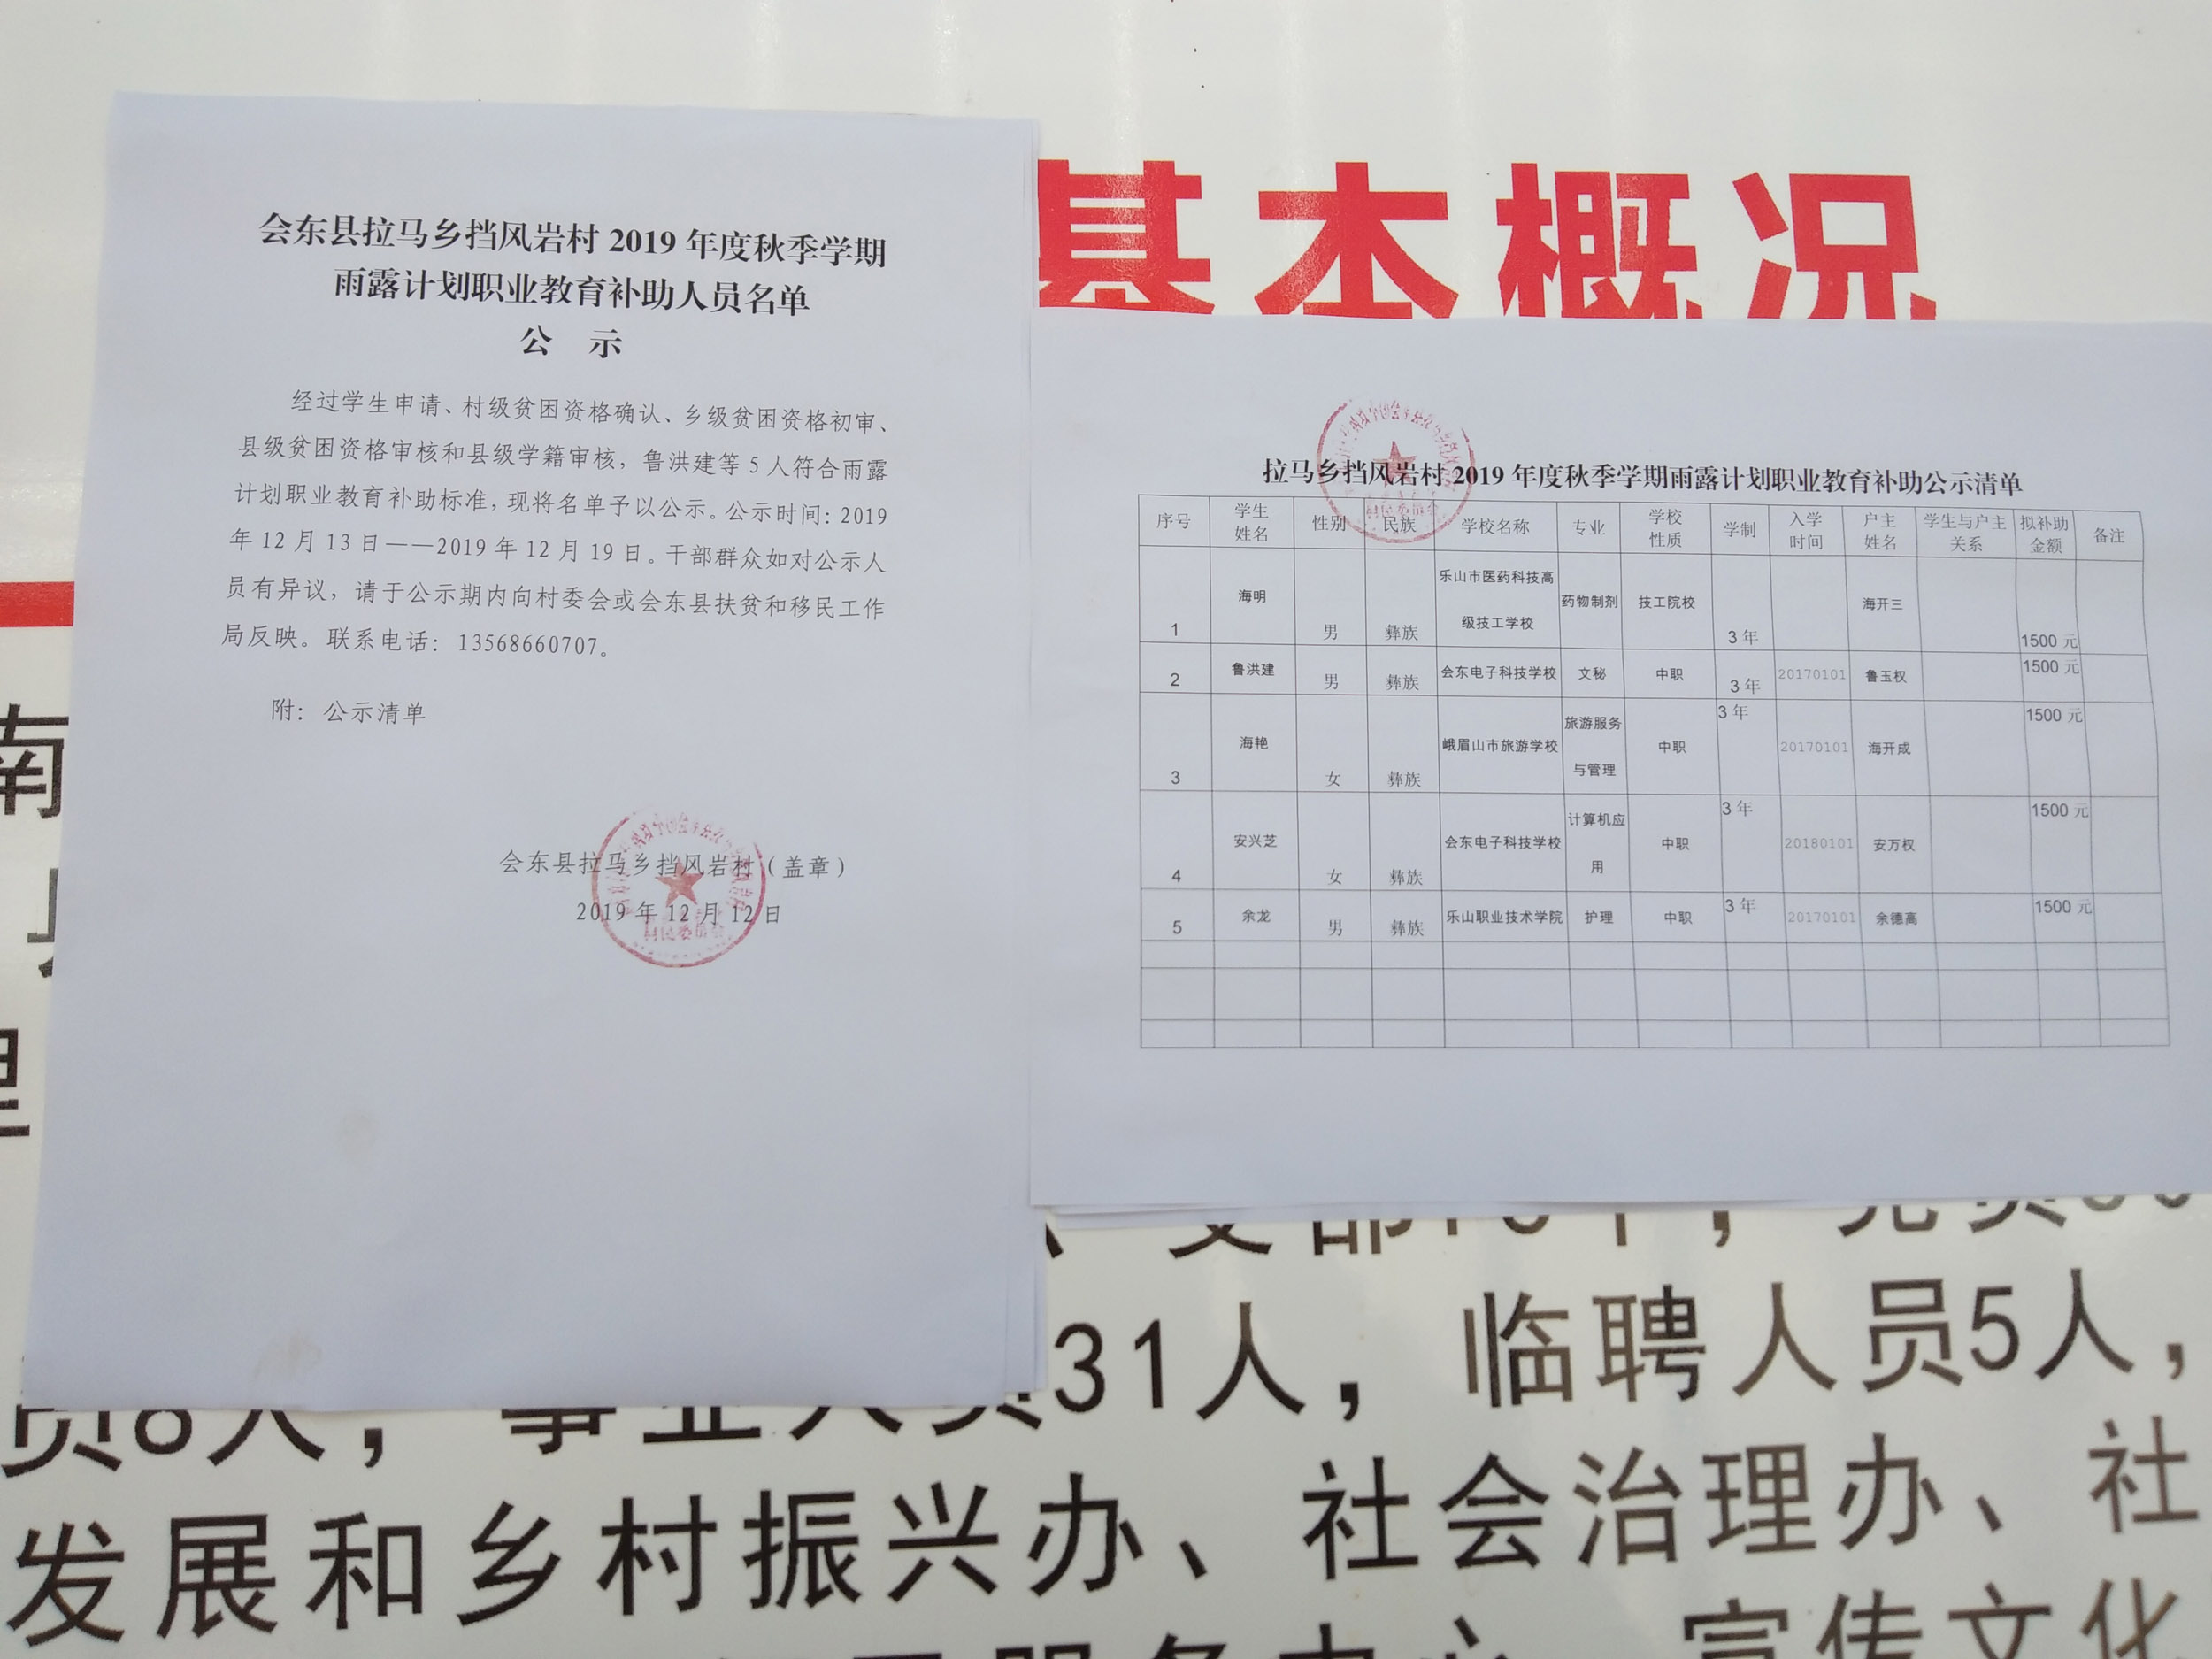 会东县拉马乡挡风岩村 2019 年度秋季学期
雨露计划职业教育补助人员名单
公 示
经过学生申请、村级贫困资格确认、乡级贫困资格初审、
县级贫困资格审核和县级学籍审核，鲁洪建等 5 人符合雨露
计划职业教育补助标准，现将名单予以公示。公示时间：2019
年 12 月 13 日——2019 年 12 月 19 日。干部群众如对公示人
员有异议，请于公示期内向村委会或会东县扶贫和移民工作
局反映。联系电话：13568660707。
附：公示清单
会东县拉马乡挡风岩村（盖章）
2019 年 12 月 12 日
村民委员会
基本概况
拉马乡挡风岩村 2019 年度秋季学期雨露计划职业教育补助公示清单
村民委员会
序号 学生姓名 性别 民族 学校名称 专业 学校性质 学制 入学时间 户主姓名 学生与户主关系 拟补助金额 备注
1 海明 男 彝族 乐山市医药科技高级技工学校 药物制剂 技工院校 3 年 海开三 1500 元
2 鲁洪建 男 彝族 会东电子科技学校 文秘 中职 3 年 20170101 鲁玉权 1500 元
3 海艳 女 彝族 峨眉山市旅游学校 旅游服务与管理 中职 3 年 20170101 海开成 1500 元
4 安兴芝 女 彝族 会东电子科技学校 计算机应用 中职 3 年 20180101 安万权 1500 元
5 余龙 男 彝族 乐山职业技术学院 护理 中职 3 年 20170101 余德高 1500 元
南
理
员8人，事业人员31人，临聘人员5人，
发展和乡村振兴办、社会治理办、社
服务中心 宣传文化